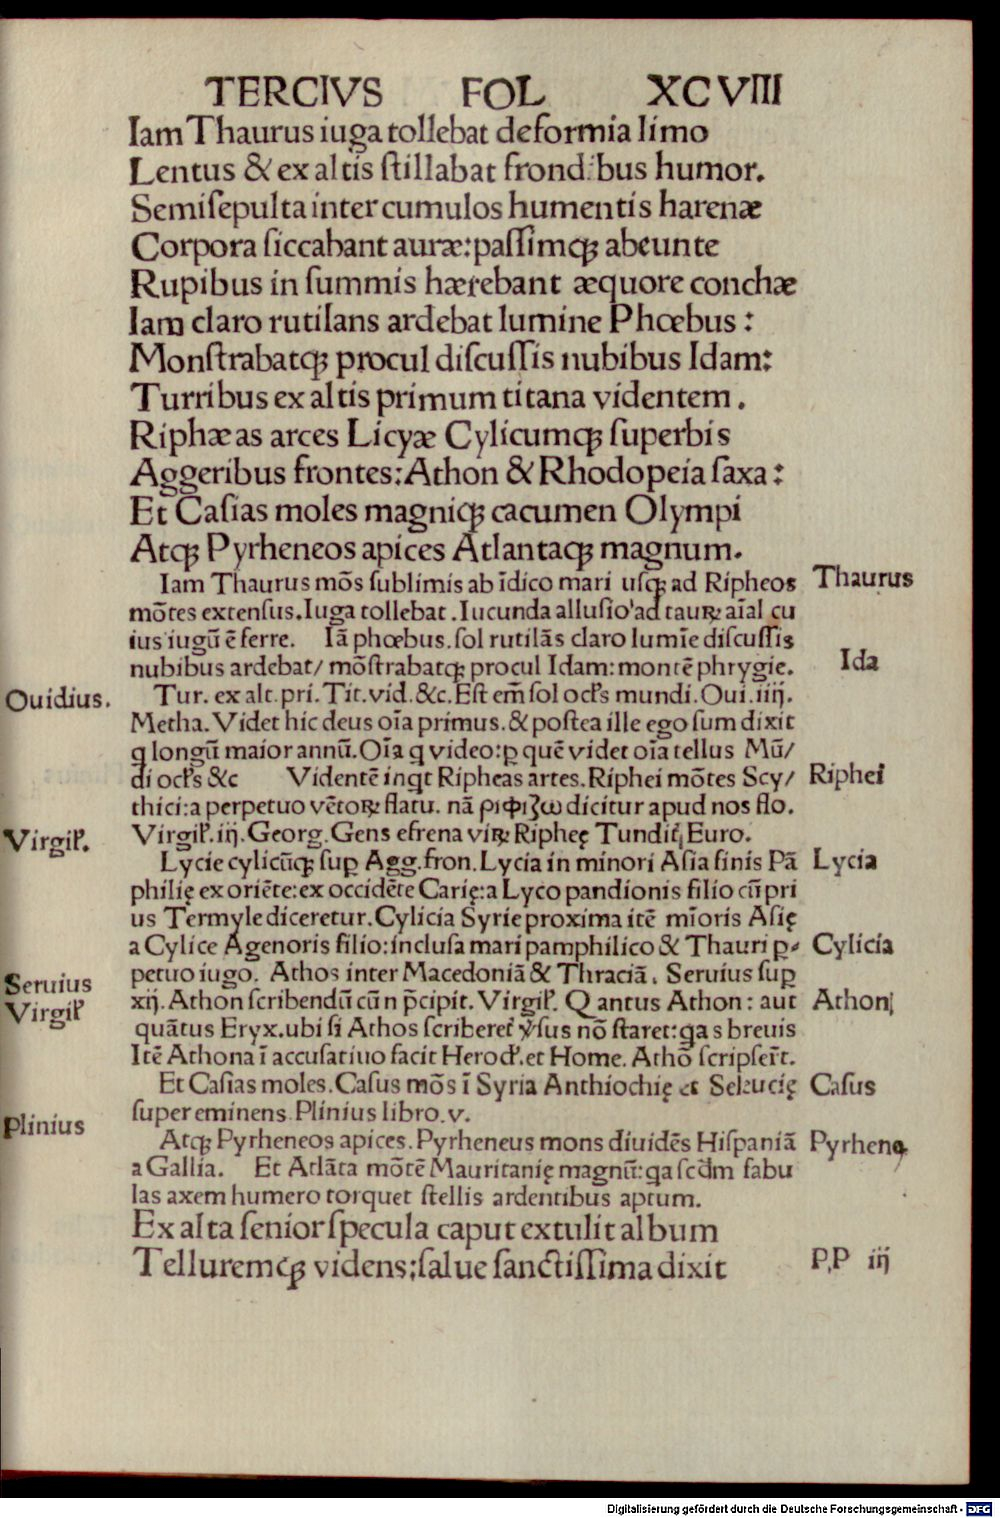 TERCIVS FOL XCVIII
Iam Thaurus iuga tollebat deformia limo
Lentus & ex altis ſtillabat frondibus humor.
Semiſepulta inter cumulos humentis harenæ
Corpora ſiccabant auræ: paſſimqꝫ abeunte
Rupibus in ſummis hærebant æquore conchæ
Iam claro rutilans ardebat lumine Phœbus :
Monſtrabatqꝫ procul diſcuſſis nubibus Idam:
Turribus ex altis primum titana videntem .
Riphæas arces Licyæ Cylicumqꝫ ſuperbis
Aggeribus frontes: Athon & Rhodopeia ſaxa :
Et Caſias moles magniqꝫ cacumen Olympi
Atqꝫ Pyrheneos apices Atlantaqꝫ magnum.
Iam Thaurus mōs ſublimis ab īdico mari uſqꝫ ad Ripheos Thaurus
mōtes extenſus. Iuga tollebat . Iucunda alluſio ad tauꝝ aīal cu
ius iugū ē ferre. Iā phœbus. ſol rutilās claro lumīe diſcuſſis
nubibus ardebat/ mōſtrabatqꝫ procul Idam: montē phrygie. Ida
Ouidius. Tur. ex alt. pri. Tit. vid. &c. Eſt em̄ ſol ocľs mundi. Oui. iiij.
Metha. Videt hic deus oīa primus. & poſtea ille ego ſum dixit
q̄ longū maior annū. Oīa q̄ video: ꝑ quē videt oīa tellus Mū/
di ocľs &c Videntē inqt Ripheas artes. Riphei mōtes Scy/ Riphei
thici: a perpetuo vētoꝝ flatu. nā ριφιζω dicitur apud nos flo.
Virgiľ. Virgiľ. iij. Georg. Gens efrena viꝝ Ripheę Tundit Euro.
Lycie cylicūqꝫ ſuꝑ Agg. fron. Lycia in minori Aſia finis Pā Lycia
philię ex oriēte: ex occidēte Carię: a Lyco pandionis filio cū pri
us Termyle diceretur. Cylicia Syrie proxima itē mīoris Aſię
a Cylice Agenoris filio: incluſa mari pamphilico & Thauri ꝑ⸗ Cylicia
petuo iugo. Athos inter Macedoniā & Thraciā . Seruius ſuꝑ Seruius
xij. Athon ſcribendū cū n p̄cipit. Virgiľ. Q antus Athon : aut Athon
Virgiľ quātus Eryx. ubi ſi Athos ſcriberet v̓ſus nō ſtaret: q̄a s breuis
Itē Athona ī accuſatiuo facit Herod̓. et Home. Athō ſcripſer̄t.
Et Caſias moles. Caſus mōs ī Syria Anthiochię et Seleucię Caſus
ſupereminens. Plinius libro. v.
Plinius Atqꝫ Pyrheneos apices. Pyrheneus mons diuidēs Hiſpaniā Pyrhene
a Gallia. Et Atlāta mōtē Mauritanię magnū: q̄a ſcd̄m fabu
las axem humero torquet ſtellis ardentibus aptum.
Ex alta ſenior ſpecula caput extulit album
Telluremqꝫ videns; ſalue ſanctiſſima dixit
P,P iij
Digitalisierung gefördert durch die Deutsche Forschungsgemeinschaft - DFG